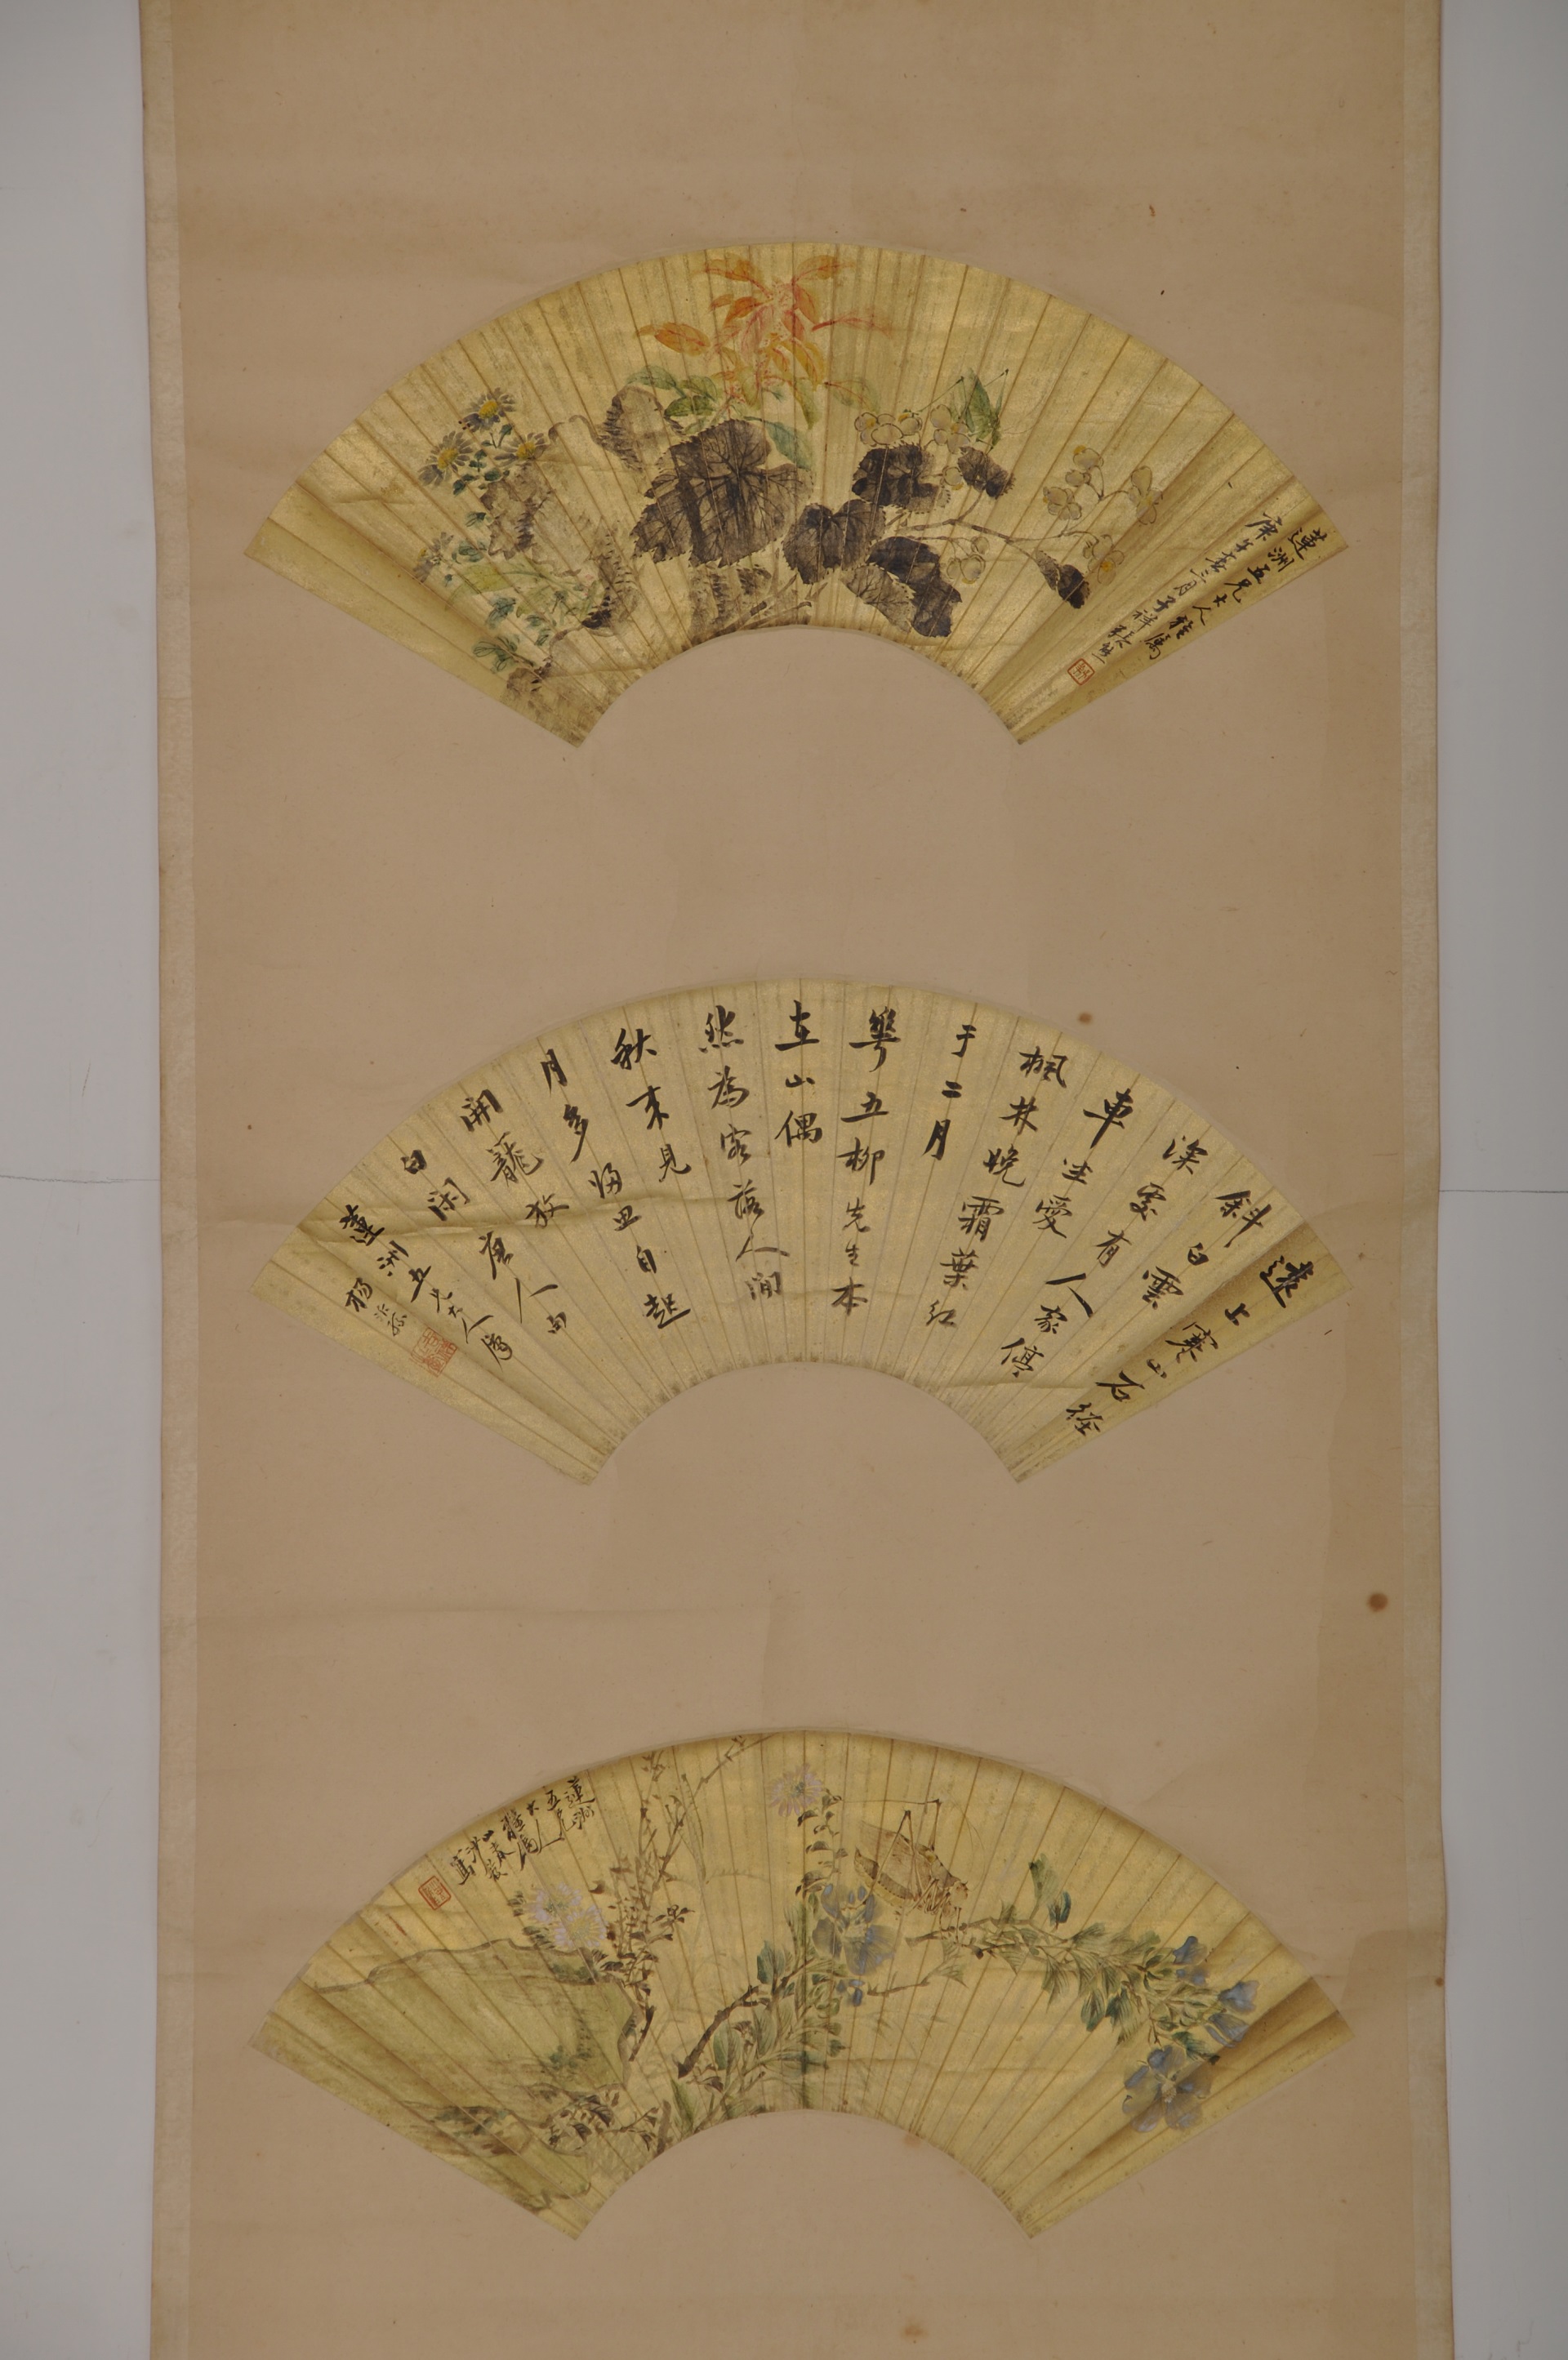 蓮洲五兄大人雅屬
庚午 三月子祥張熊
遠上寒山石徑
斜白雲
深處有人家停
車坐愛
楓林晚霜葉紅
于二月
華五柳先生本
在山偶
然為客落人間
秋来見
月多歸思自起
開籠放
白閑唐人句
蓮洲五兄大人屬
楊沂孫
蓮洲
五兄
大人
雅屬
山春
寫